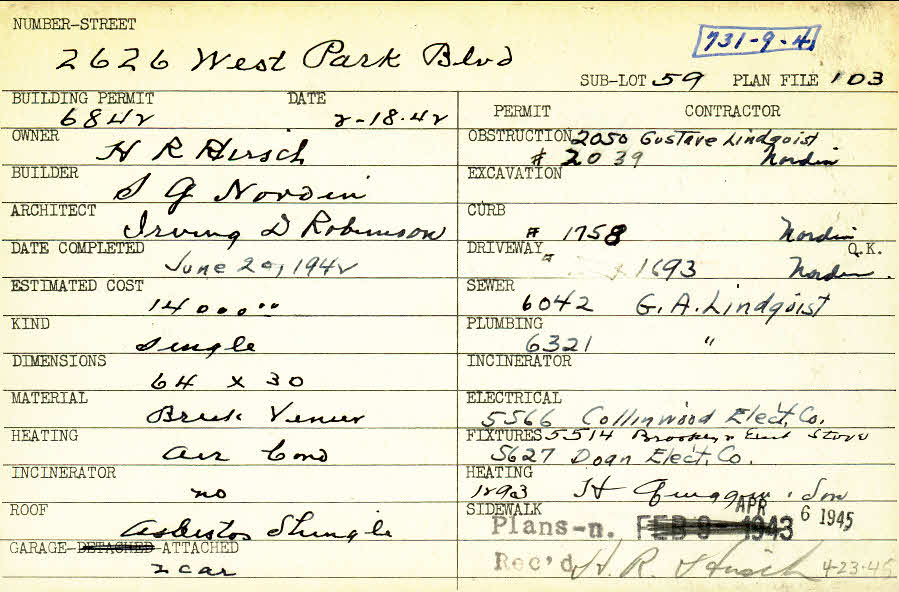 NUMBER-STREET
2626 West Park Blvd
731-9-4
SUB-LOT 59 PLAN FILE 103
BUILDING PERMIT DATE
6842 2-18-42
OWNER
H R Hirsch
BUILDER
S G Nordin
ARCHITECT
Irving D Robinson
DATE COMPLETED
June 20, 1942
ESTIMATED COST
14000 00
KIND
Single
DIMENSIONS
64 x 30
MATERIAL
Brick Veneer
HEATING
Air Cond
INCINERATOR
no
ROOF
Asbestos Shingle
GARAGE-DETACHED-ATTACHED
2 car
PERMIT CONTRACTOR
OBSTRUCTION 2050 Gustave Lindquist
# 2039 Nordin
EXCAVATION
CURB
# 1758 Nordin
DRIVEWAY O.K.
1693 Nordin.
SEWER
6042 G. A. Lindquist
PLUMBING
6321 "
INCINERATOR
ELECTRICAL
5566 Collinwood Elect. Co.
FIXTURES 5514 Elect Store
5627 Doan Elect. Co.
HEATING
1893 H Son
SIDEWALK
Plans-n. FEB 9 - 1943 APR 6 1945
Rec'd H. R. Hirsch 4-23-45